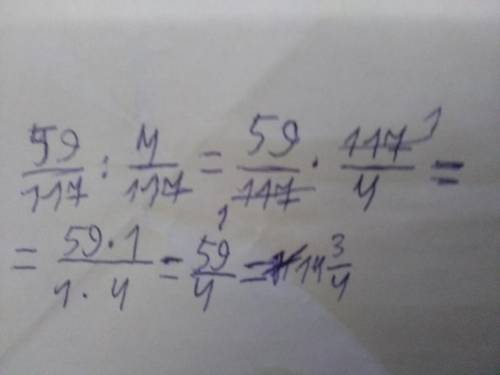 59/117 : 4/117 = 59/117 · 117/4 =
= 59·1/1·4 = 59/4 = 14 3/4